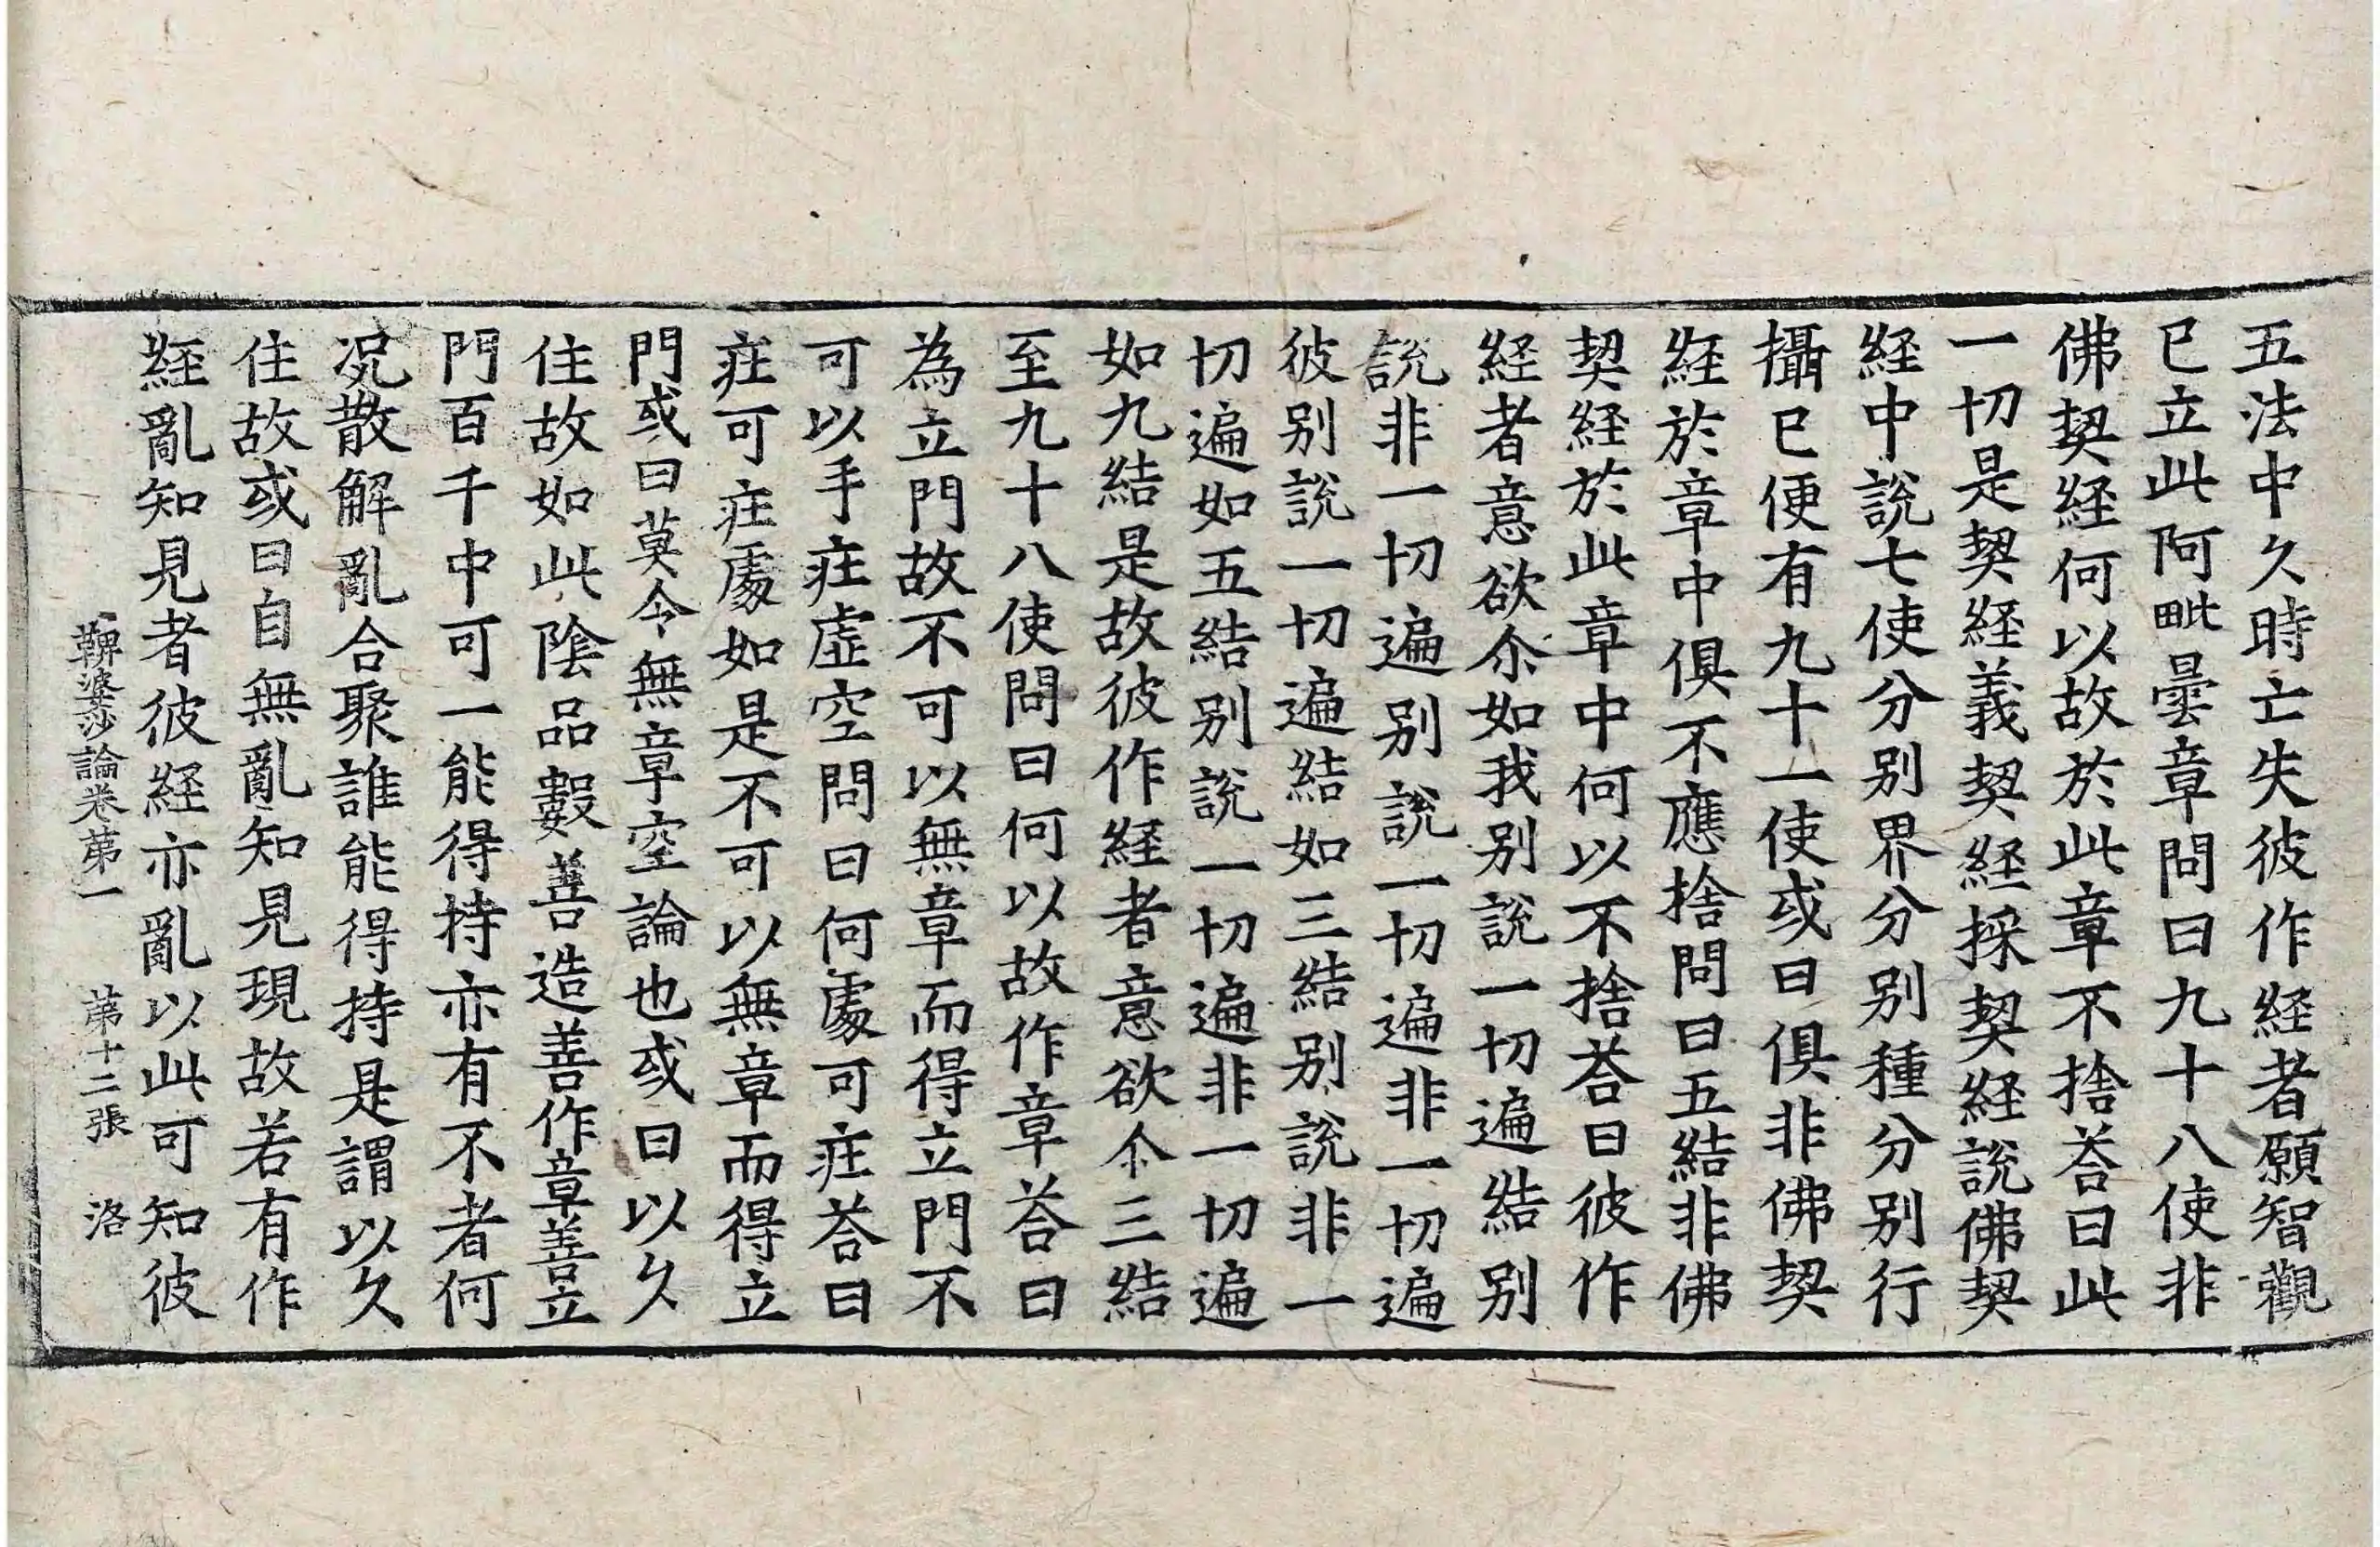 五法中久時亡失彼作経者願智觀
已立此阿毗曇章問曰九十八使非
佛契経何以故於此章不捨荅曰此
一切是契経義契経採契経說佛契
経中說七使分别界分别種分别行
攝已便有九十一使或曰俱非佛契
経於章中俱不應捨問曰五結非佛
契経於此章中何以不捨荅曰彼作
経者意欲尒如我别說一切遍結别
說非一切遍别說一切遍非一切遍
彼别說一切遍結如三結别說非一
切遍如五結别說一切遍非一切遍
如九結是故彼作経者意欲尒三結
至九十八使問曰何以故作章荅曰
為立門故不可以無章而得立門不
可以手㽵虛空問曰何處可㽵荅曰
㽵可㽵處如是不可以無章而得立
門或曰莫令無章空論也或曰以久
住故如此陰品數善造善作章善立
門百千中可一能得持亦有不者何
況散解亂合聚誰能得持是謂以久
住故或曰自無亂知見現故若有作
経亂知見者彼経亦亂以此可知彼
鞞婆沙論卷苐一 苐十二張 洛